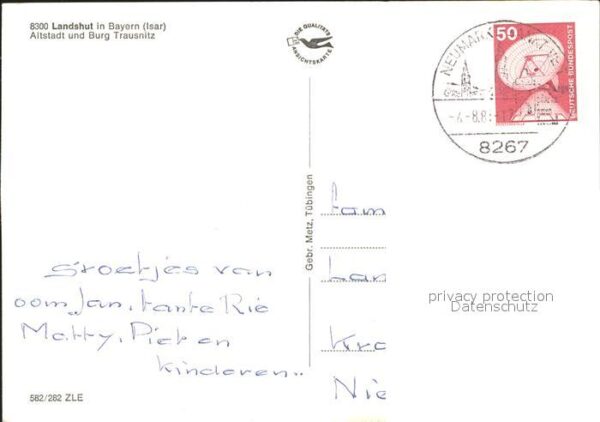 8300 Landshut in Bayern (Isar)
Altstadt und Burg Trausnitz
DIE QUALITÄTS
ANSICHTSKARTE
50
DEUTSCHE BUNDESPOST
NEUMARKT-SANKT VEIT
8267
Gebr. Metz, Tübingen
Groetjes van
oom Jan, tante Rie
Matty, Piet en
kinderen..
fam
Lan
Kro
Nie
privacy protection
Datenschutz
582/282 ZLE